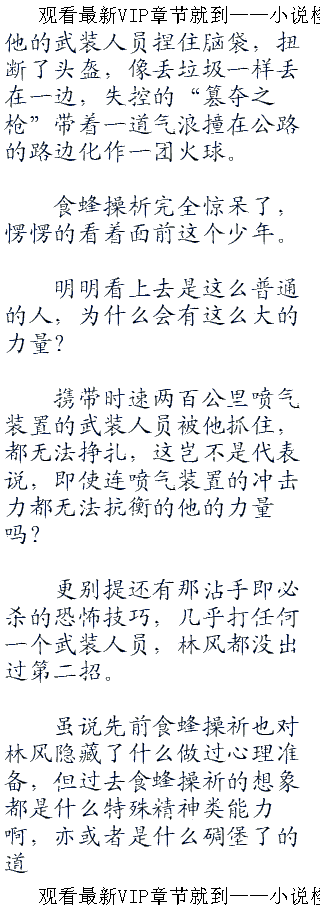 观看最新VIP章节就到——小说检
他的武装人员捏住脑袋，扭
断了头盔，像丢垃圾一样丢
在一边，失控的“篡夺之
枪”带着一道气浪撞在公路
的路边化作一团火球。
食蜂操析完全惊呆了，
愣愣的看着面前这个少年。
明明看上去是这么普通
的人，为什么会有这么大的
力量？
携带时速两百公里喷气
装置的武装人员被他抓住，
都无法挣扎，这岂不是代表
说，即使连喷气装置的冲击
力都无法抗衡的他的力量
吗？
更别提还有那沾手即必
杀的恐怖技巧，几乎打任何
一个武装人员，林风都没出
过第二招。
虽说先前食蜂操祈也对
林风隐藏了什么做过心理准
备，但过去食蜂操祈的想象
都是什么特殊精神类能力
啊，亦或者是什么碉堡了的
道
观看最新VIP章节就到——小说检